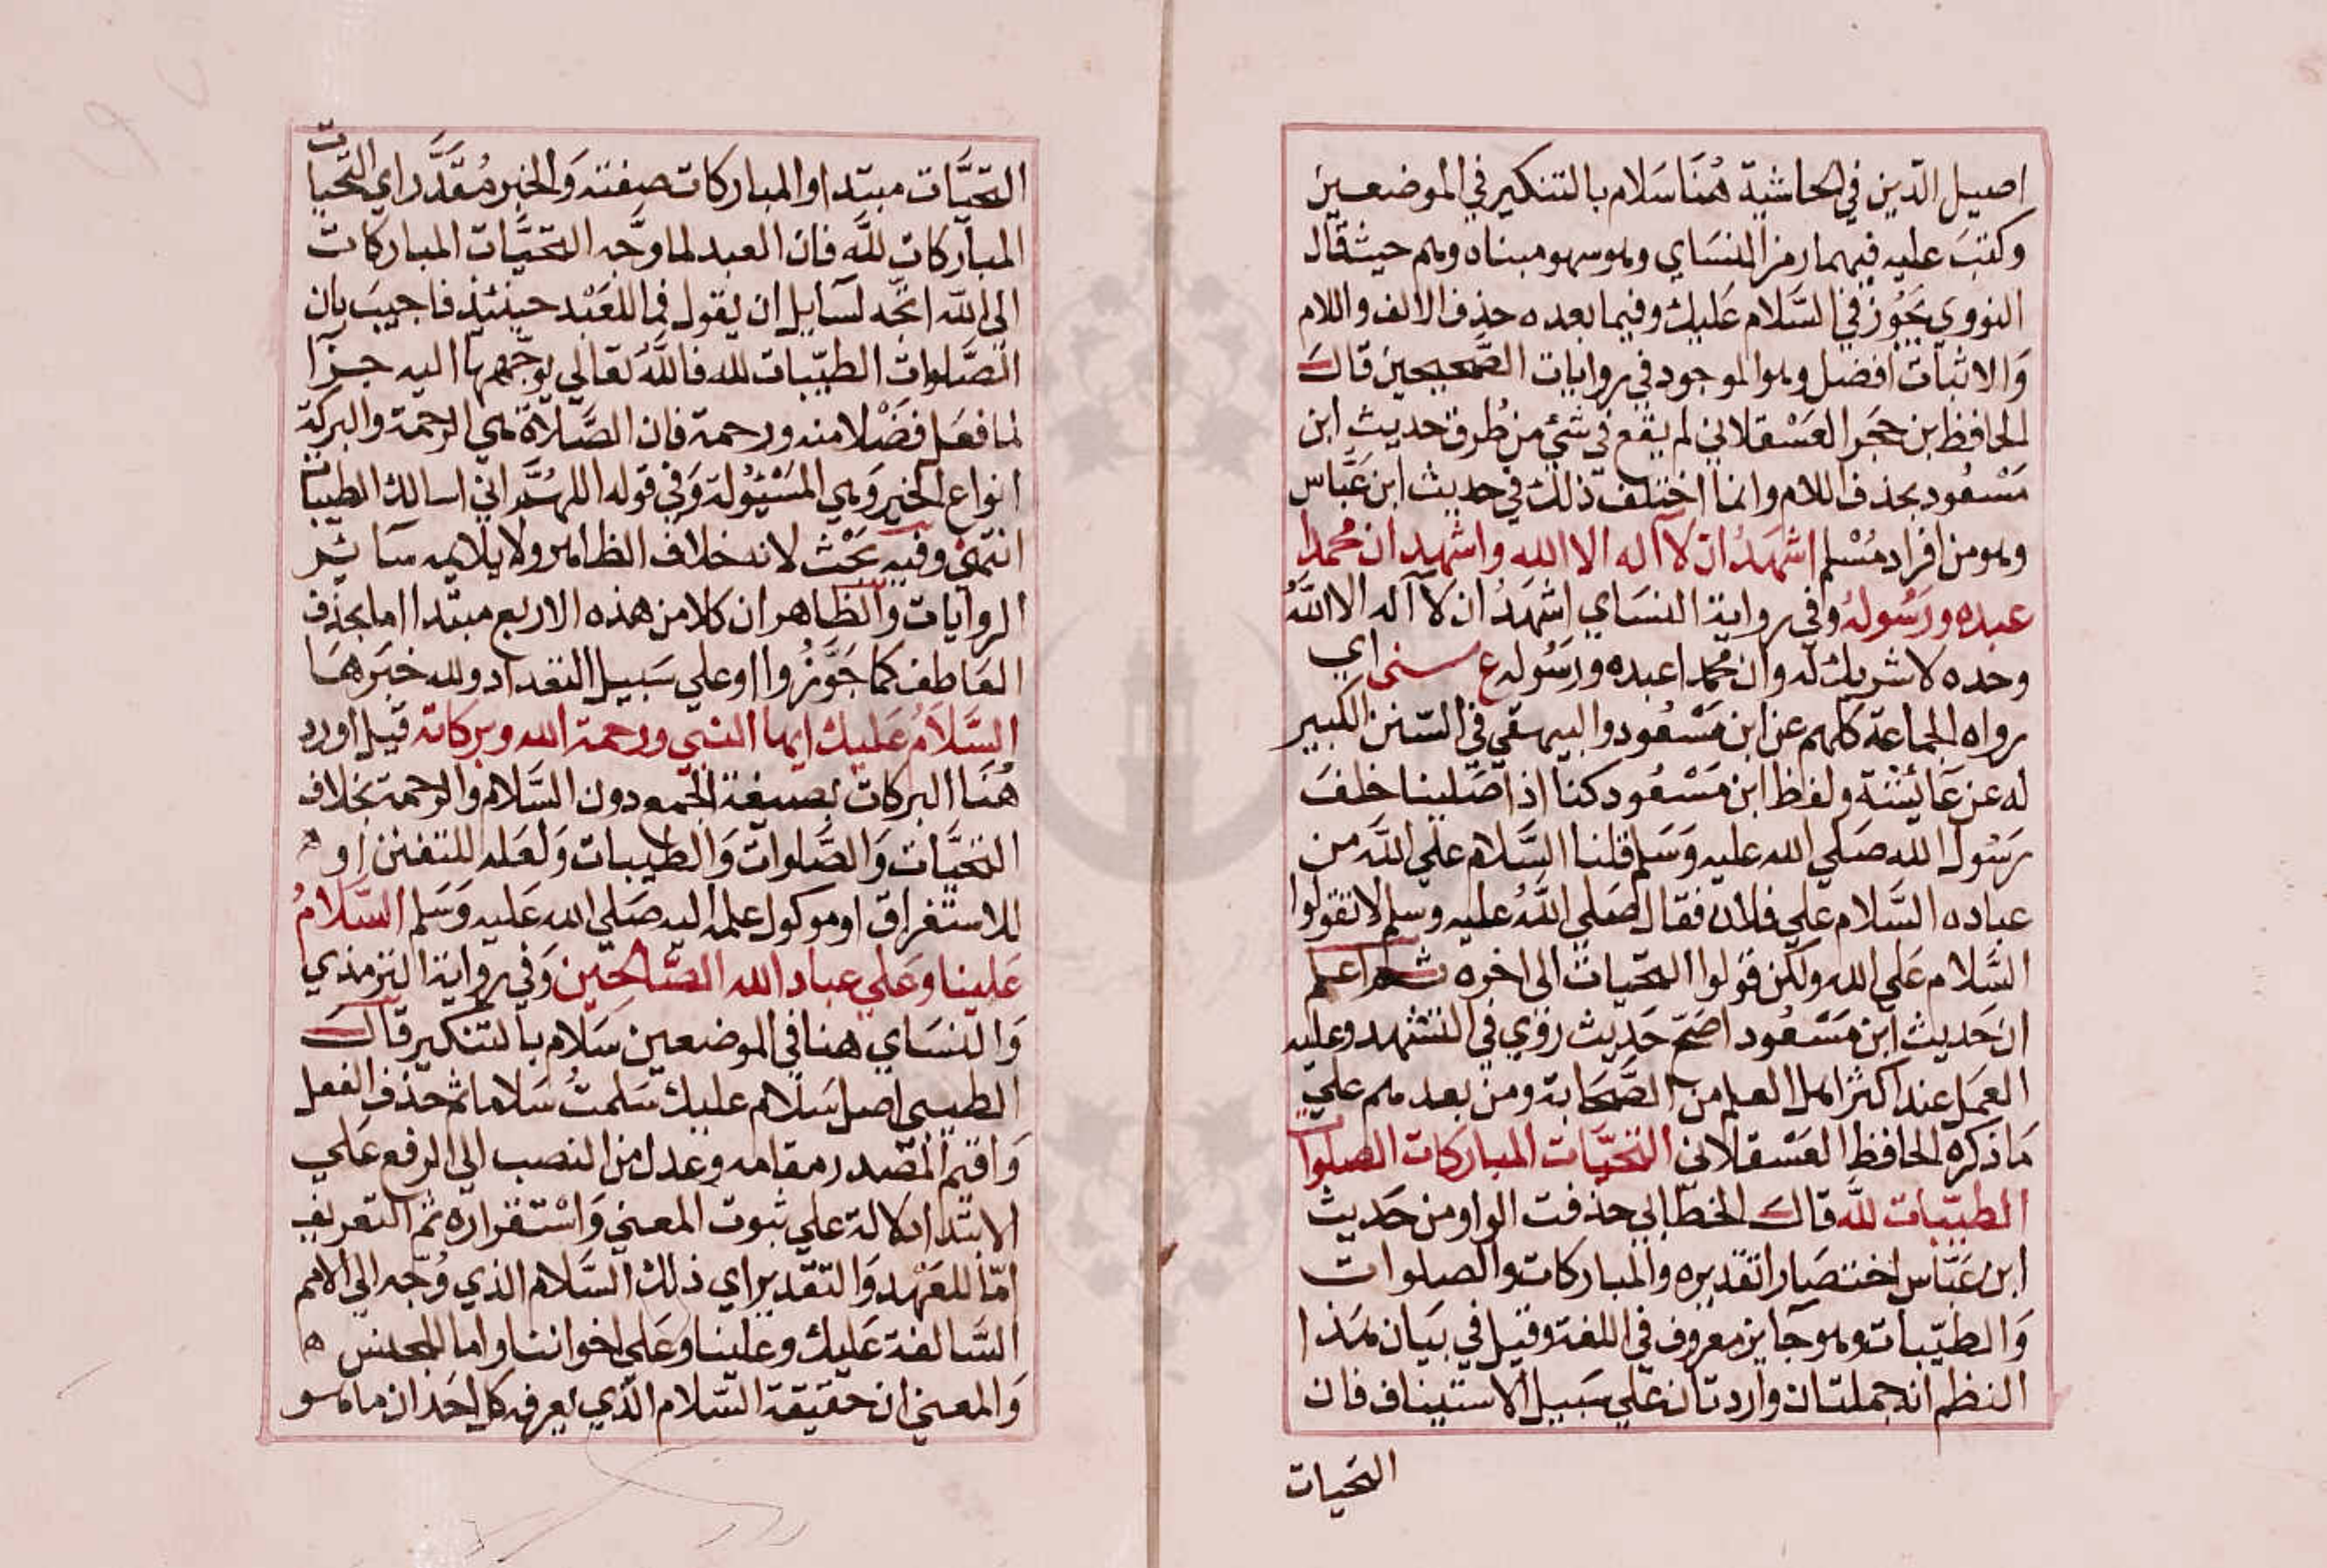 اصيل الدّين في الحاشية هُنَا سَلام بالتنكير في الموضعين
وكتبَ عليه فيهما رمز النسَاي وهو سهو مبناه وهم حيث قال
النووي يَجُوز في السَّلام عَليك وفيما بعده حذف الالف واللام
وَالاثبات افضل وهو الموجود في روايات الصَّحيحين قال
الحافظ ابن حجَر العَسْقلاني لم يقع في شئ من طُرق حديث ابن
مَسْعُود بحذف اللام وانما اختلف ذلك في حديث ابن عَبَّاس
وهو من افراد مُسْلم اشهَدُ ان لا اله الا الله واشهد ان محمدا
عبده ورَسُوله وفي رواية النسَاي اشهَدُ ان لا اله الا اللَّهُ
وحده لا شريك له وان محمدا عبده ورَسُوله ع سني اي
رواه الجماعَة كلهم عن ابن مَسْعُود والبيهقي في السّنن الكبير
له عن عَائِشَة ولفظ ابن مَسْعُود كنا اذا صَلينا خلفَ
رَسُول الله صَلي الله عليه وَسَلم قلنا السَّلام علي اللَّه من
عباده السَّلام علي فلان فقال صَلي اللَّهُ عليه وسلم لا تقولوا
السَّلام عَلي الله ولكن قولوا التحّيات الى اخره ثم اعلم
ان حَديث ابن مَسْعُود اصَحّ حَديث رُوي في التشهد وعليه
العمَل عند اكثر اهل العلم من الصَّحَابة ومن بعدهم عليٰ
مَا ذكره الحافظ العَسْقلاني التحَيَّات المباركات الصلوات
الطيّبات للَّه قال الخطّابي حذفت الواو من حَديث
ابن عَبّاس اختصَارا تقديره والمباركات والصلوات
وَالطيّبات وهو جَايز معروف في اللغة وقيل في بيَان هَذا
النظم انه جملتان واردتان علي سَبيل الاستيناف فان
التحيات
التحيَّات مبتدا والمباركات صفته وَالخبر مُقَدَّر اي التحيات
المباركات للَّه فان العبد لما وَجَّه التحيَّات المباركات
الي اللّه اتجّه لسَايل ان يقول فما للعَبْد حينئذ فاجيبَ بان
الصَّلوات الطيّبات لله فاللَّهُ تعَالي يوجّهها اليه جزَآ
لما فعَل فضْلا منه ورحمة فان الصَّلاة هي الرحمة والبركة
انواع الخير وَهي المَسْئُولة وَفي قوله اللهُمَّ اني اسالك الطيبات
انتهٰي وفيه بَحْث لانه خلاف الظاهر ولا يلايمه سَائر
الروايات وَالظاهر ان كلا من هذه الاربع مبتدا اما بحذف
العَاطف كما جَوَّزُوا او علي سَبيل التعداد ولله خبَرهَا
السَّلَامُ عَليك ايها النبي ورحمة الله وبركاته قيل اورد
هُنَا البركات بصيغة الجمع دون السَّلام والرحمة بخلاف
التحيَّات وَالصَّلوات وَالطيبات وَلعَله للتفنن او ه
للاستغراق او موكول علمه اليه صَلي الله عَليه وَسَلم السَّلامُ
عَلينا وعَلي عباد الله الصَّالحين وَفي رواية الترمذي
وَالنسَاي هنا في الموضعين سَلام بالتنكير قال
الطيبي اصل سَلام عليك سَلمتُ سَلاما ثم حذف الفعل
وَاقيم المصْدر مقامه وَعدل من النصب الي الرفع عَلي
الابتدا للدلالة علي ثبوت المعني وَاسْتقراره ثم التعريف
امّا للعَهْد وَالتقدير اي ذلك السَّلام الذي وُجّه الي الامم
السَّالفة عَليك وعَلينا وعَلي اخواننا واما للجنس ه
وَالمعني ان حَقيقة السَّلام الّذي يعرفه كل احَد ان ما هو